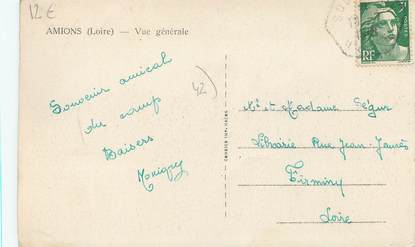 12€
AMIONS (Loire) — Vue générale
RF
Souvenir amical
du camp
Baisers
42
Mr et Madame Ségur
Librairie Rue Jean-Jaurès
Firminy
Loire